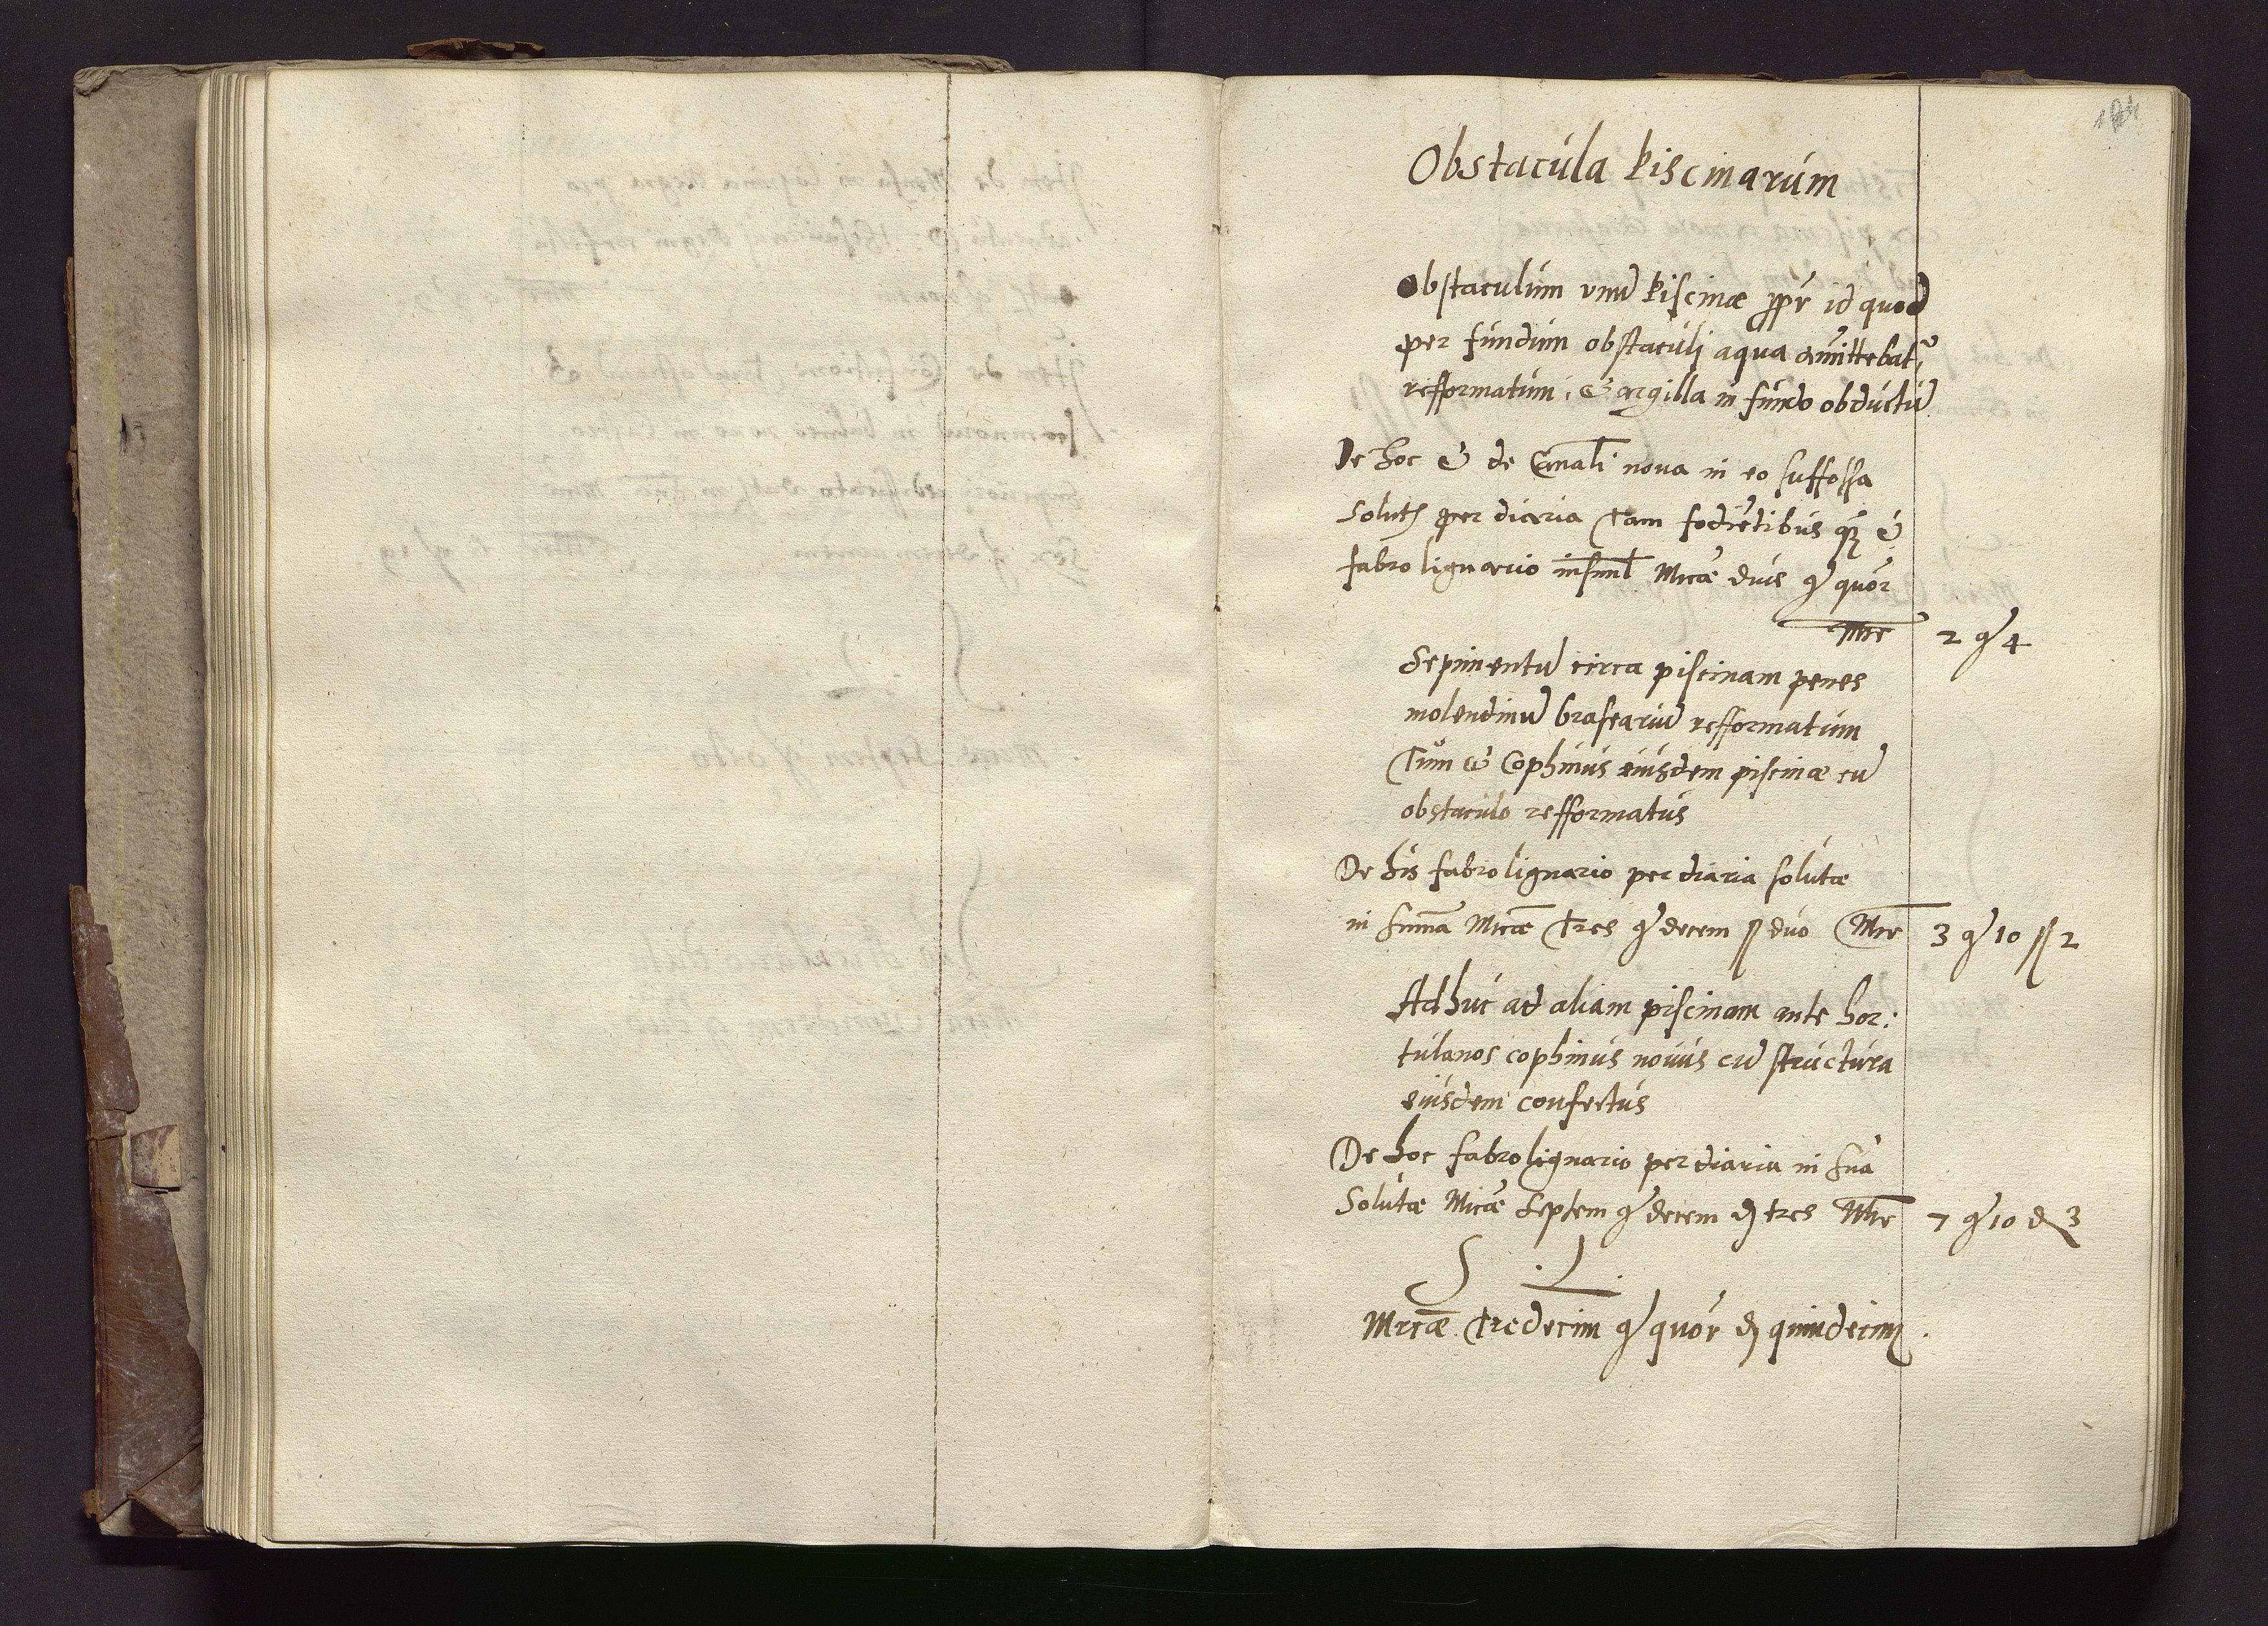 Obstacula Piscinarum
Obstaculum vnu Piscinæ ꝓpr id quod
per fundum obstaculi aqua amittebatr
refformatum, & argilla in fundo obductu
De hoc & de Canali noua in eo suffossa
Solut per diaria tam fodietibus q &
fabro lignario insiml Mrcæ duæ gͦ quor
Mrc 2 gͦ 4
Sepimentu circa piscinam penes
molendinu brasearium refformatum
Tum & Cophinus eiusdem piscinæ cu
obstaculo refformatus
De his fabro lignario per diaria solutæ
in suma Mrcæ tres gͦ decem ſſ duo Mrc 3 gͦ 10 ſſ 2
Adhuc ad aliam piscinam ante hor:
tulanos cophinus nouus cu structura
eiusdem confectus
De hoc fabro lignario per diaria in sua
Solutæ Mrcæ Septem gͦ decem ₰ tres Mrc 7 gͦ 10 ₰ 3
S L
Mrcæ tredecim gͦ quor ₰ quindecim.